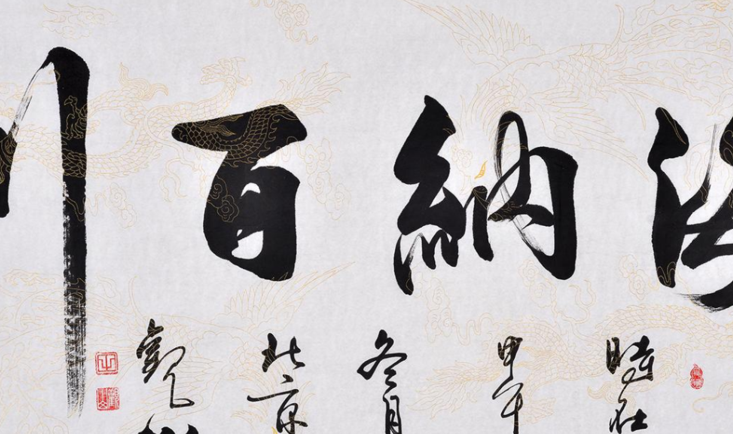 海納百川
時在
甲午
冬月
北京